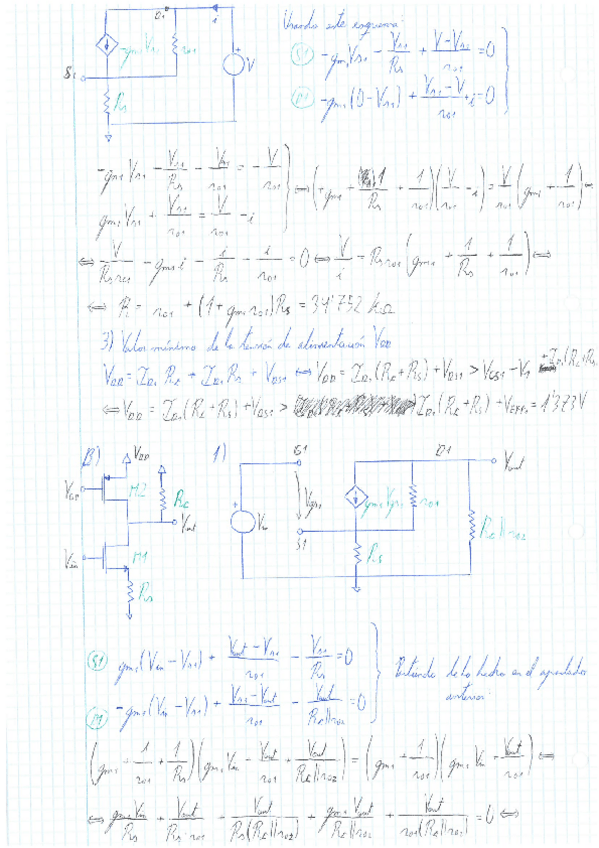 D1 i
gm1Vs1 ro1 V
S1
Rs
Usando este esquema:
(S1) -gm1Vs1 - Vs1/Rs + (V-Vs1)/ro1 = 0
(D1) -gm1(0-Vs1) + (Vs1-V)/ro1 + i = 0
-gm1Vs1 - Vs1/Rs - Vs1/ro1 = -V/ro1
gm1Vs1 + Vs1/ro1 = V/ro1 - i
⟺ (+gm1 + 1/Rs + 1/ro1)(V/ro1 - i) = V/ro1 (gm1 + 1/ro1) ⟺
⟺ V/(Rs ro1) - gm1 i - i/Rs - i/ro1 = 0 ⟺ V/i = Rs ro1 (gm1 + 1/Rs + 1/ro1) ⟺
⟺ R = ro1 + (1 + gm1 ro1)Rs = 34'752 kΩ
3) Valor mínimo de la tensión de alimentación VDD
VDD = ID1 Rc + ID1 Rs + VDS1 ⟺ VDD = ID1(Rc+Rs) + VDS1 > VGS1 - Vt + ID1(Rc+Rs)
⟺ VDD = ID1(Rc+Rs) + VDS1 > ID1(Rc+Rs) + VEFF1 = 1'373V
B) VDD
M2 Rc
Vout
Vin M1
Rs
1) G1 D1 Vout
Vin Vgs1 gm1Vgs1 ro1 Rc||ro2
S1
Rs
(S1) gm1(Vin-Vs1) + (Vout-Vs1)/ro1 - Vs1/Rs = 0
(D1) -gm1(Vin-Vs1) + (Vs1-Vout)/ro1 - Vout/(Rc||ro2) = 0
Partiendo de lo hecho en el apartado
anterior:
(gm1 + 1/ro1 + 1/Rs)(gm1 Vin + Vout/ro1 + Vout/(Rc||ro2)) = (gm1 + 1/ro1)(gm1 Vin + Vout/ro1) ⟺
⟺ gm1Vin/Rs + Vout/(Rs·ro1) + Vout/(Rs(Rc||ro2)) + gm1Vout/(Rc||ro2) + Vout/(ro1(Rc||ro2)) = 0 ⟺